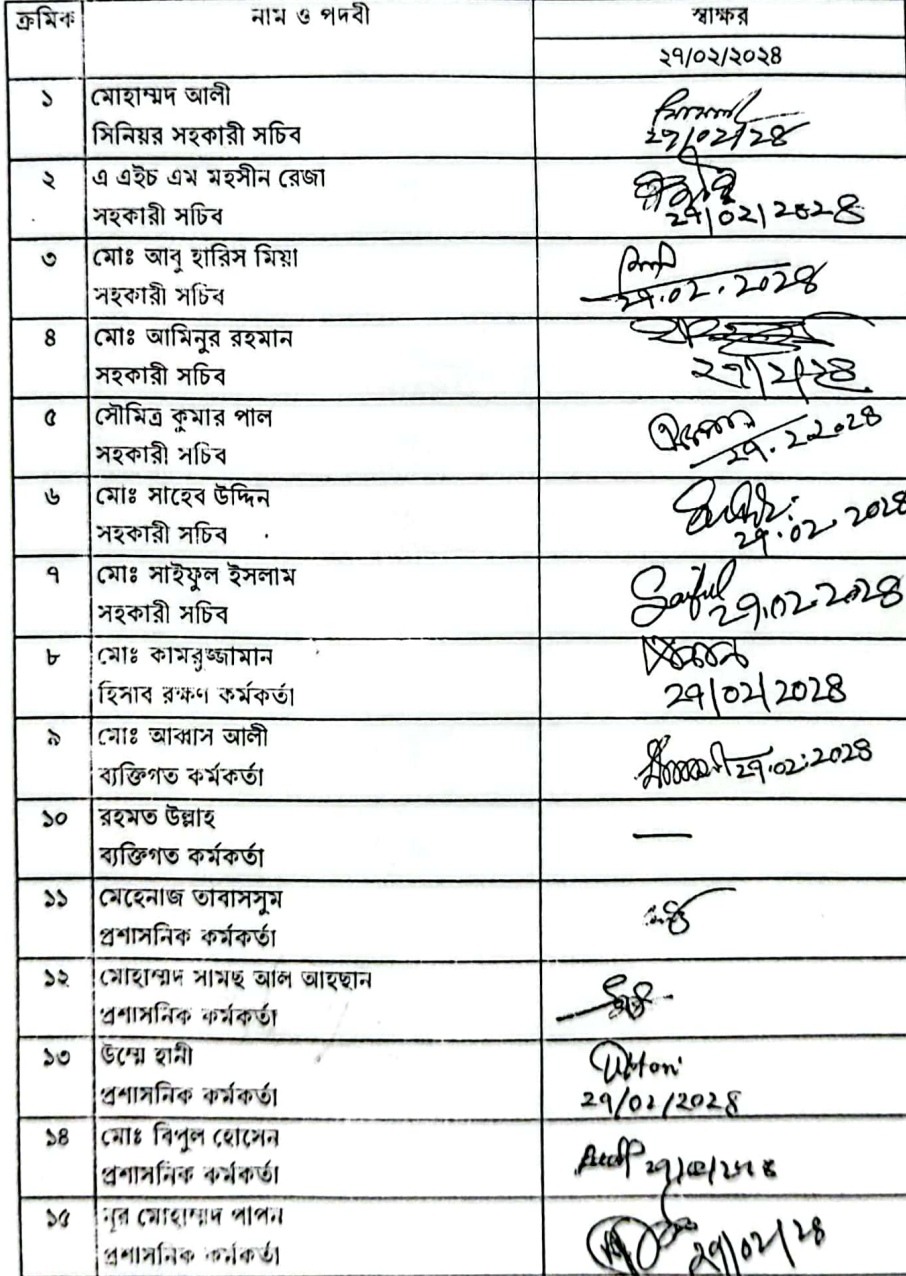 ক্রমিক নাম ও পদবী স্বাক্ষর
২৭/০২/২০২৪
১ মোহাম্মদ আলী
সিনিয়র সহকারী সচিব
২৭/০২/২৪
২ এ এইচ এম মহসীন রেজা
সহকারী সচিব
২৭/০২/২০২৪
৩ মোঃ আবু হারিস মিয়া
সহকারী সচিব
২৭.০২.২০২৪
৪ মোঃ আমিনুর রহমান
সহকারী সচিব
২৭/২/২৪
৫ সৌমিত্র কুমার পাল
সহকারী সচিব
২৭.২.২০২৪
৬ মোঃ সাহেব উদ্দিন
সহকারী সচিব
২৭.০২.২০২৪
৭ মোঃ সাইফুল ইসলাম
সহকারী সচিব
Saiful ২৭.০২.২০২৪
৮ মোঃ কামরুজ্জামান
হিসাব রক্ষণ কর্মকর্তা
২৭/০২/২০২৪
৯ মোঃ আব্বাস আলী
ব্যক্তিগত কর্মকর্তা
২৭.০২.২০২৪
১০ রহমত উল্লাহ
ব্যক্তিগত কর্মকর্তা
—
১১ মেহেনাজ তাবাসসুম
প্রশাসনিক কর্মকর্তা
১২ মোহাম্মদ সামছ আল আহছান
প্রশাসনিক কর্মকর্তা
১৩ উম্মে হানী
প্রশাসনিক কর্মকর্তা
২৭/০২/২০২৪
১৪ মোঃ বিপুল হোসেন
প্রশাসনিক কর্মকর্তা
২৭/০২/২০২৪
১৫ নূর মোহাম্মাদ পাপন
প্রশাসনিক কর্মকর্তা
২৭/০২/২৪